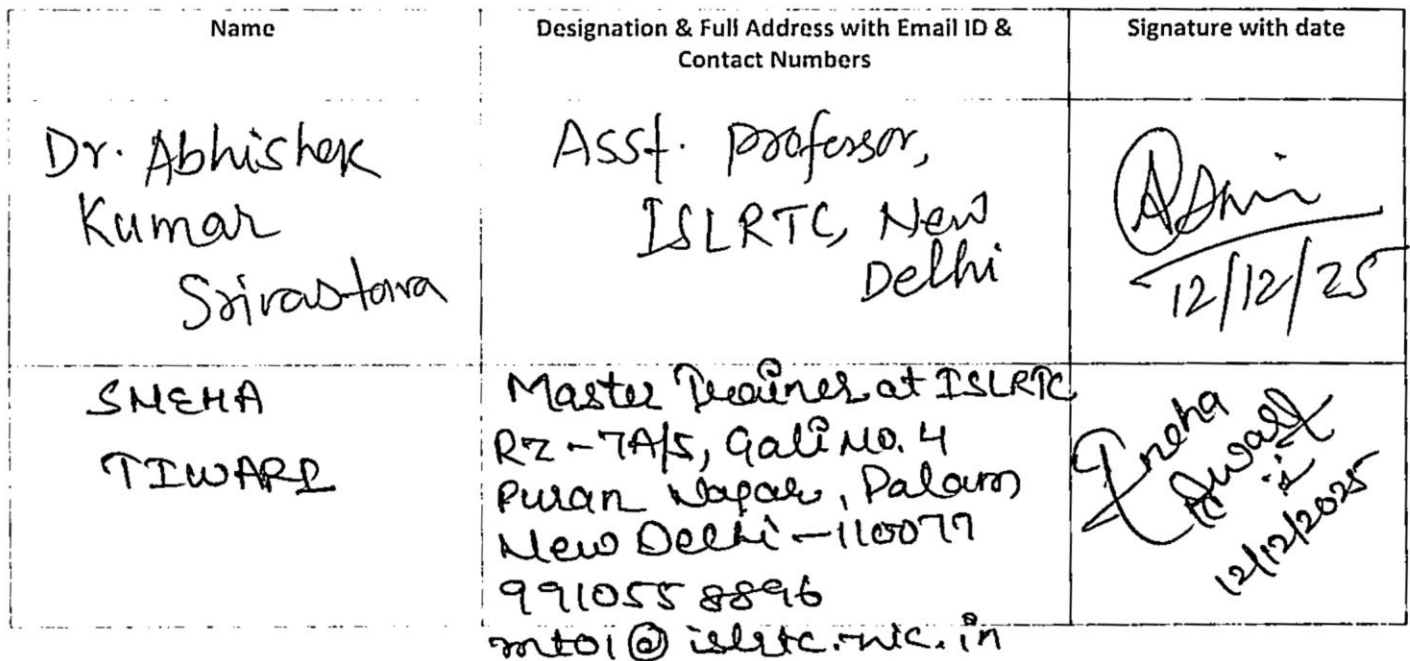 Name
Designation & Full Address with Email ID &
Contact Numbers
Signature with date
Dr. Abhishek
Kumar
Srivastava
Asst. Professor,
ISLRTC, New
Delhi
12/12/25
SNEHA
TIWARI
Master Trainer at ISLRTC
RZ-7A/5, Gali No. 4
Puran Nagar, Palam
New Delhi-110077
9910558896
mt01@islrtc.nic.in
Sneha
Tiwari
12/12/2025